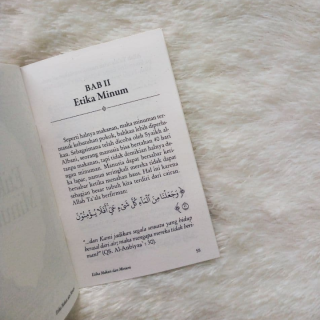 BAB II
Etika Minum
Seperti halnya makanan, maka minuman ter-
masuk kebutuhan pokok, bahkan lebih diperlu-
kan. Sebagaimana telah dicoba oleh Syaikh al-
Albani, seorang manusia bisa bertahan 40 hari
tanpa makanan, tapi tidak demikian halnya de-
ngan minuman. Manusia dapat bersabar keti-
ka lapar, namun seringkali mereka tidak dapat
bersabar ketika menahan haus. Hal ini karena
sebagian besar tubuh kita terdiri dari cairan.
Allah Ta'ala berfirman:
﴿ وَجَعَلْنَا مِنَ الْمَاءِ كُلَّ شَيْءٍ حَيٍّ أَفَلَا يُؤْمِنُونَ
﴾
"...dan Kami jadikan segala sesuatu yang hidup
berasal dari air; maka mengapa mereka tidak beri-
man?" (Qs. Al-Anbiyaa' : 30).
Etika Makan dan Minum